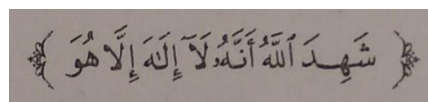 ﴿ شَهِدَ ٱللَّهُ أَنَّهُۥ لَآ إِلَٰهَ إِلَّا هُوَ ﴾